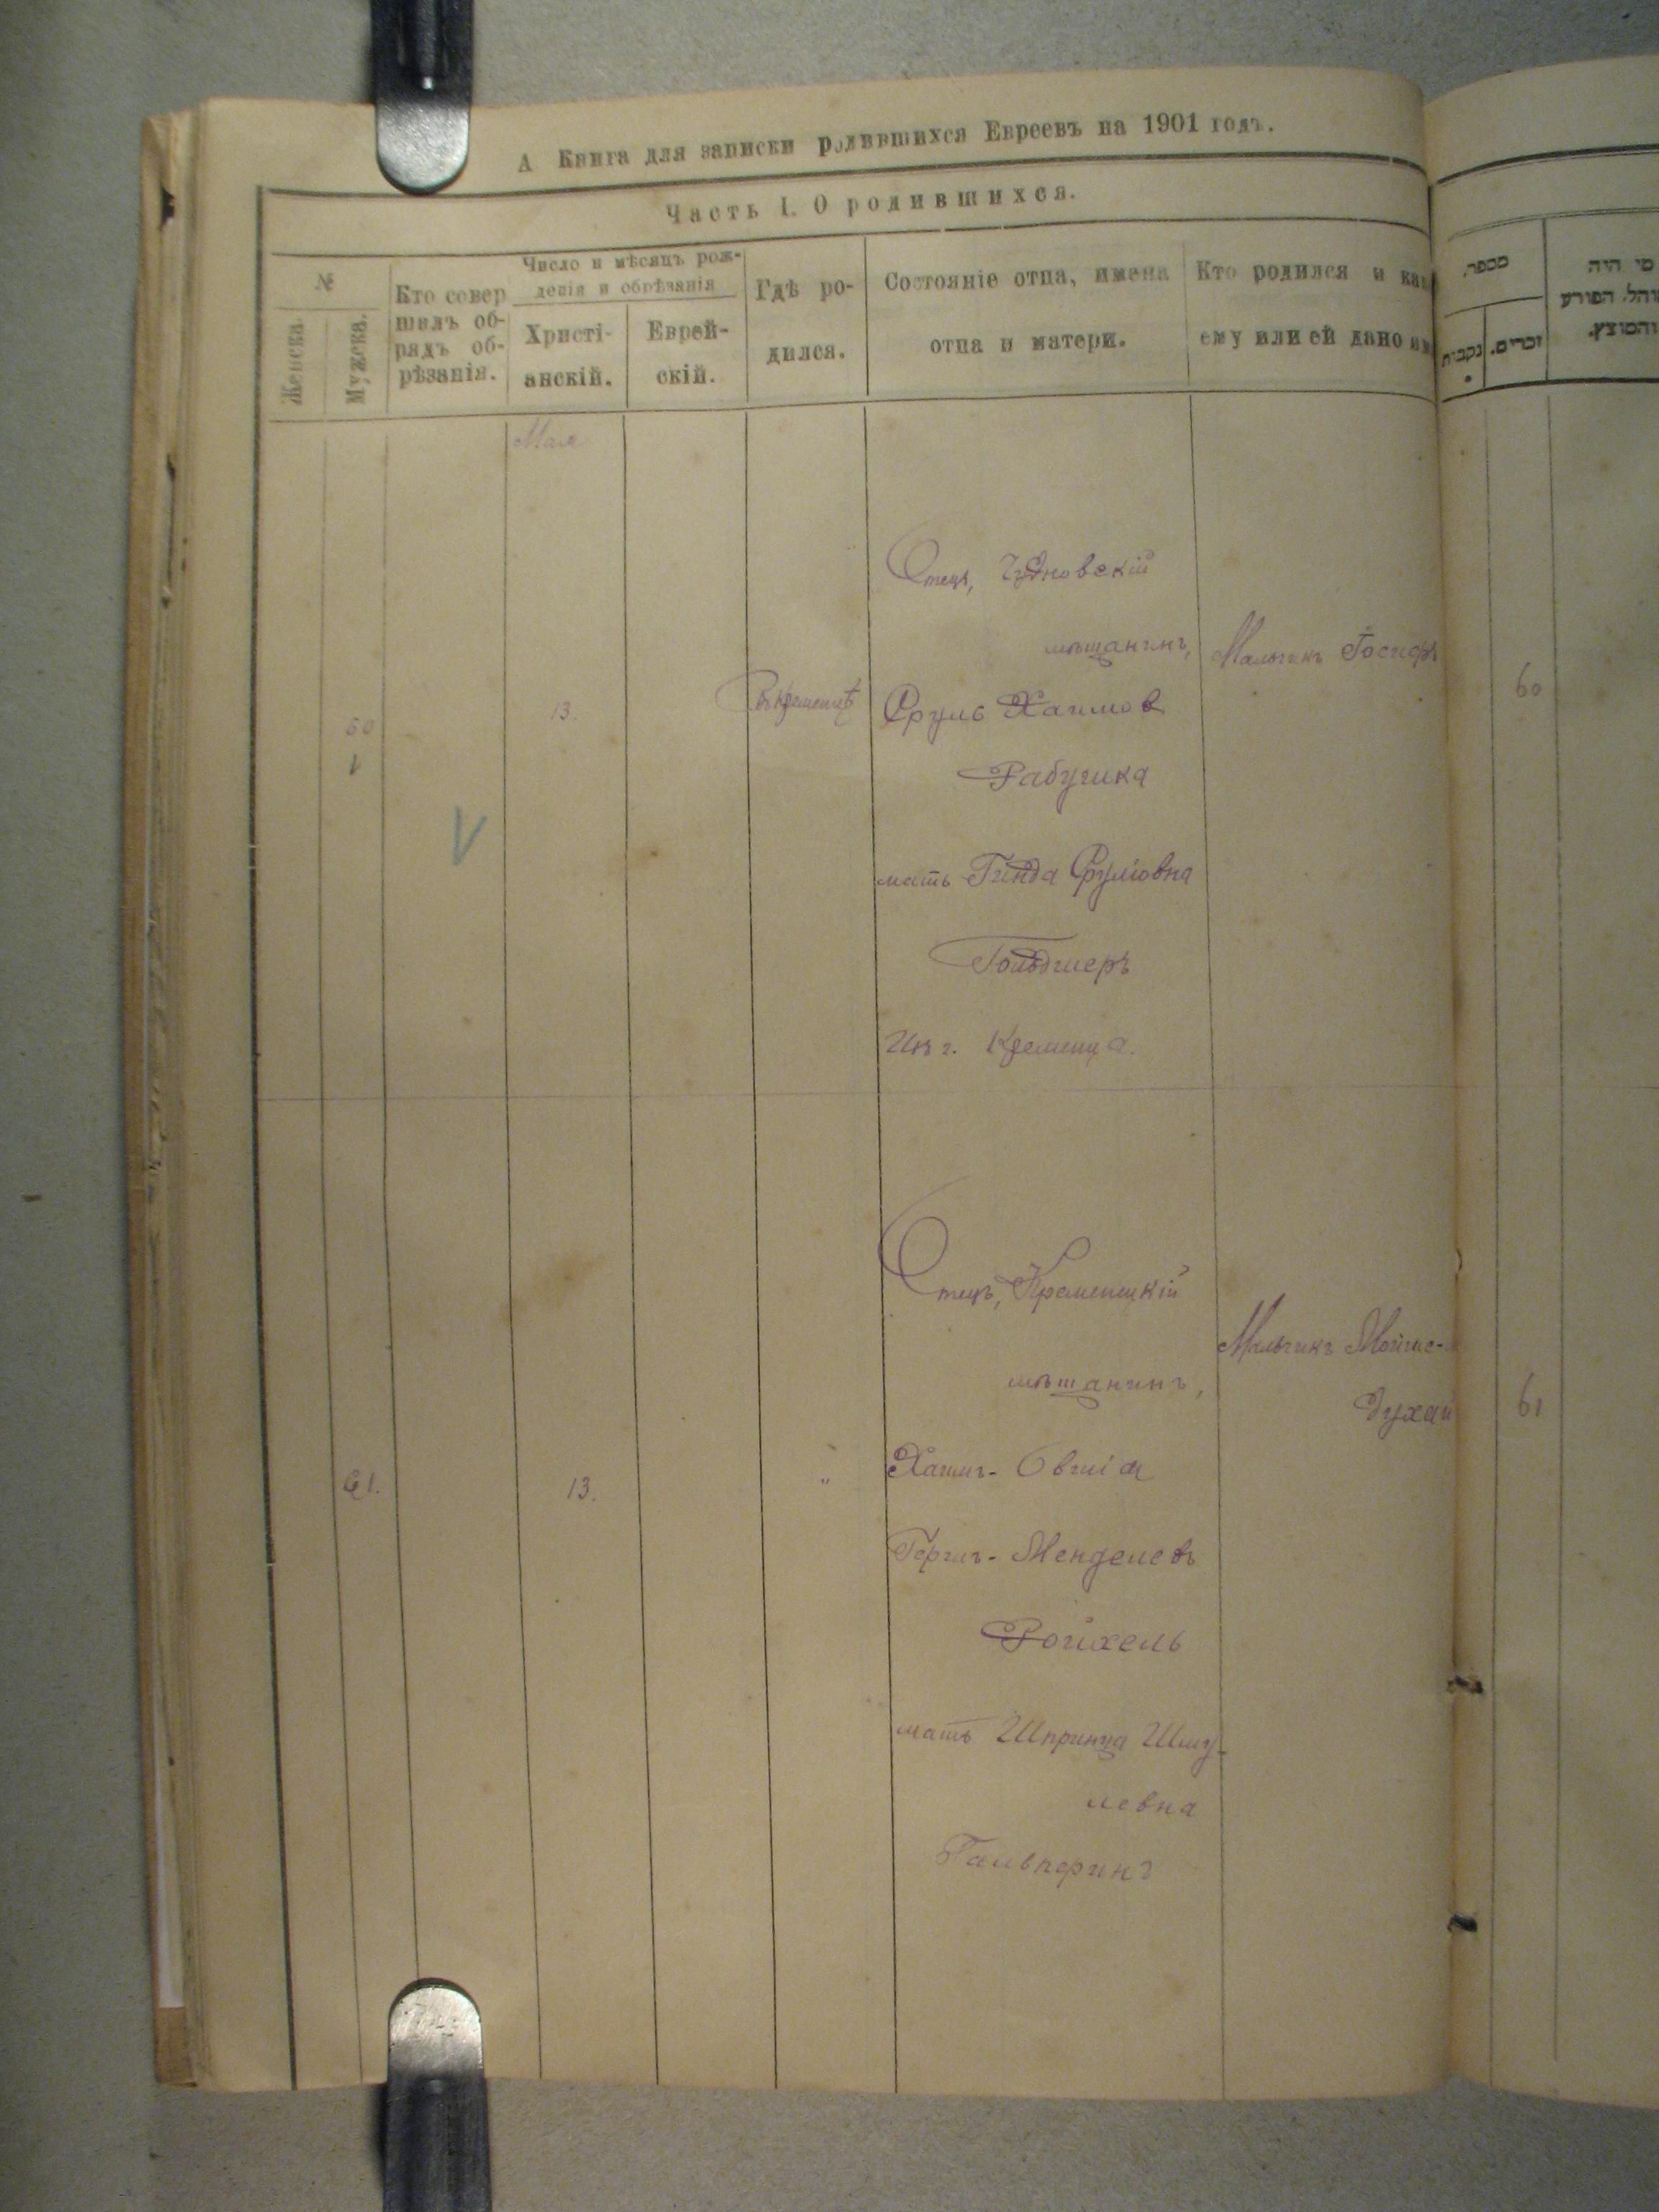 А Книга для записки родившихся Евреевъ на 1901 годъ.
Часть I. О родившихся.
№
Женска.
Мужска.
Кто совер
шилъ об-
рядъ об-
рѣзанія.
Число и мѣсяцъ рож-
денія и обрѣзанія
Христі-
анскій.
Еврей-
скій.
Гдѣ ро-
дился.
Состояніе отца, имена
отца и матери.
Кто родился и как
ему или ей дано им
מספר.
נקבות
זכרים.
מי היה
הפורע
והמוצץ.
Мая
60
13.
Въ Кременцѣ
Отецъ, Чудновскій
мѣщанинъ,
Сруль Хаимов
Рабучика
мать Гинда Срулiовна
Гольдшеръ
Изъ г. Кременца.
Мальчикъ Іосифъ
60
61.
13.
"
Отецъ, Кременецкій
мѣщанинъ,
Хаимъ-Овшія
Гершъ-Менделевъ
Ройхель
мать Шпринца Шму-
левна
Гальперинъ
Мальчикъ
61